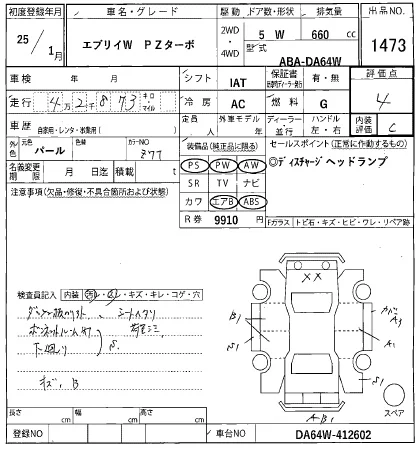 初度登録年月 車名・グレード 駆動 ドア数・形状 排気量 出品NO
25年 1月 エブリイW PZターボ 2WD・4WD 5 W 660cc 1473
型式 ABA-DA64W
車検 年 月 シフト IAT 保証書 有・無 評価点 4
走行 4万2千873 キロ マイル 冷房 AC 燃料 G
車歴 自家用・レンタ・教習用( ) 定員 人 外車モデル 年 ディーラー・並行 ハンドル 左・右 内装評価 C
外色 元色 パール 色替 カラーNO Z7T
装備品(純正品に限る) セールスポイント(正常に作動するもの)
名義変更期限 月 日迄 積載 t
PS PW AW ◎ディスチャージヘッドランプ
SR TV ナビ
カワ エアB ABS
注意事項(欠品・修復・不具合箇所および状態)
R券 9910円 Fガラス トビ石・キズ・ヒビ・ワレ・リペア跡
検査員記入 内装 汚レ・スレ・キズ・キレ・コゲ・穴
キズ、B
××
B1
S1
A1
S1
AB1
スペア
長さ cm 幅 cm 高さ cm
登録NO 車台NO DA64W-412602